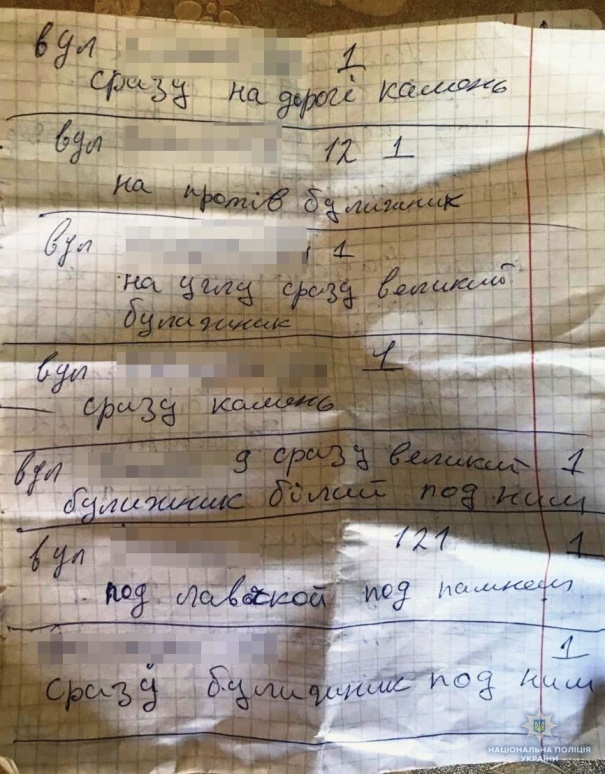 вул 1
сразу на дорогі камень
вул 12 1
на протів булижник
вул 1
на углу сразу великий
булижник
вул 1
сразу камень
вул 9 сразу великий 1
булижник білий под ним
вул 121 1
под лавкой под памнем
1
сразу булижник под ним
НАЦІОНАЛЬНА ПОЛІЦІЯ
УКРАЇНИ